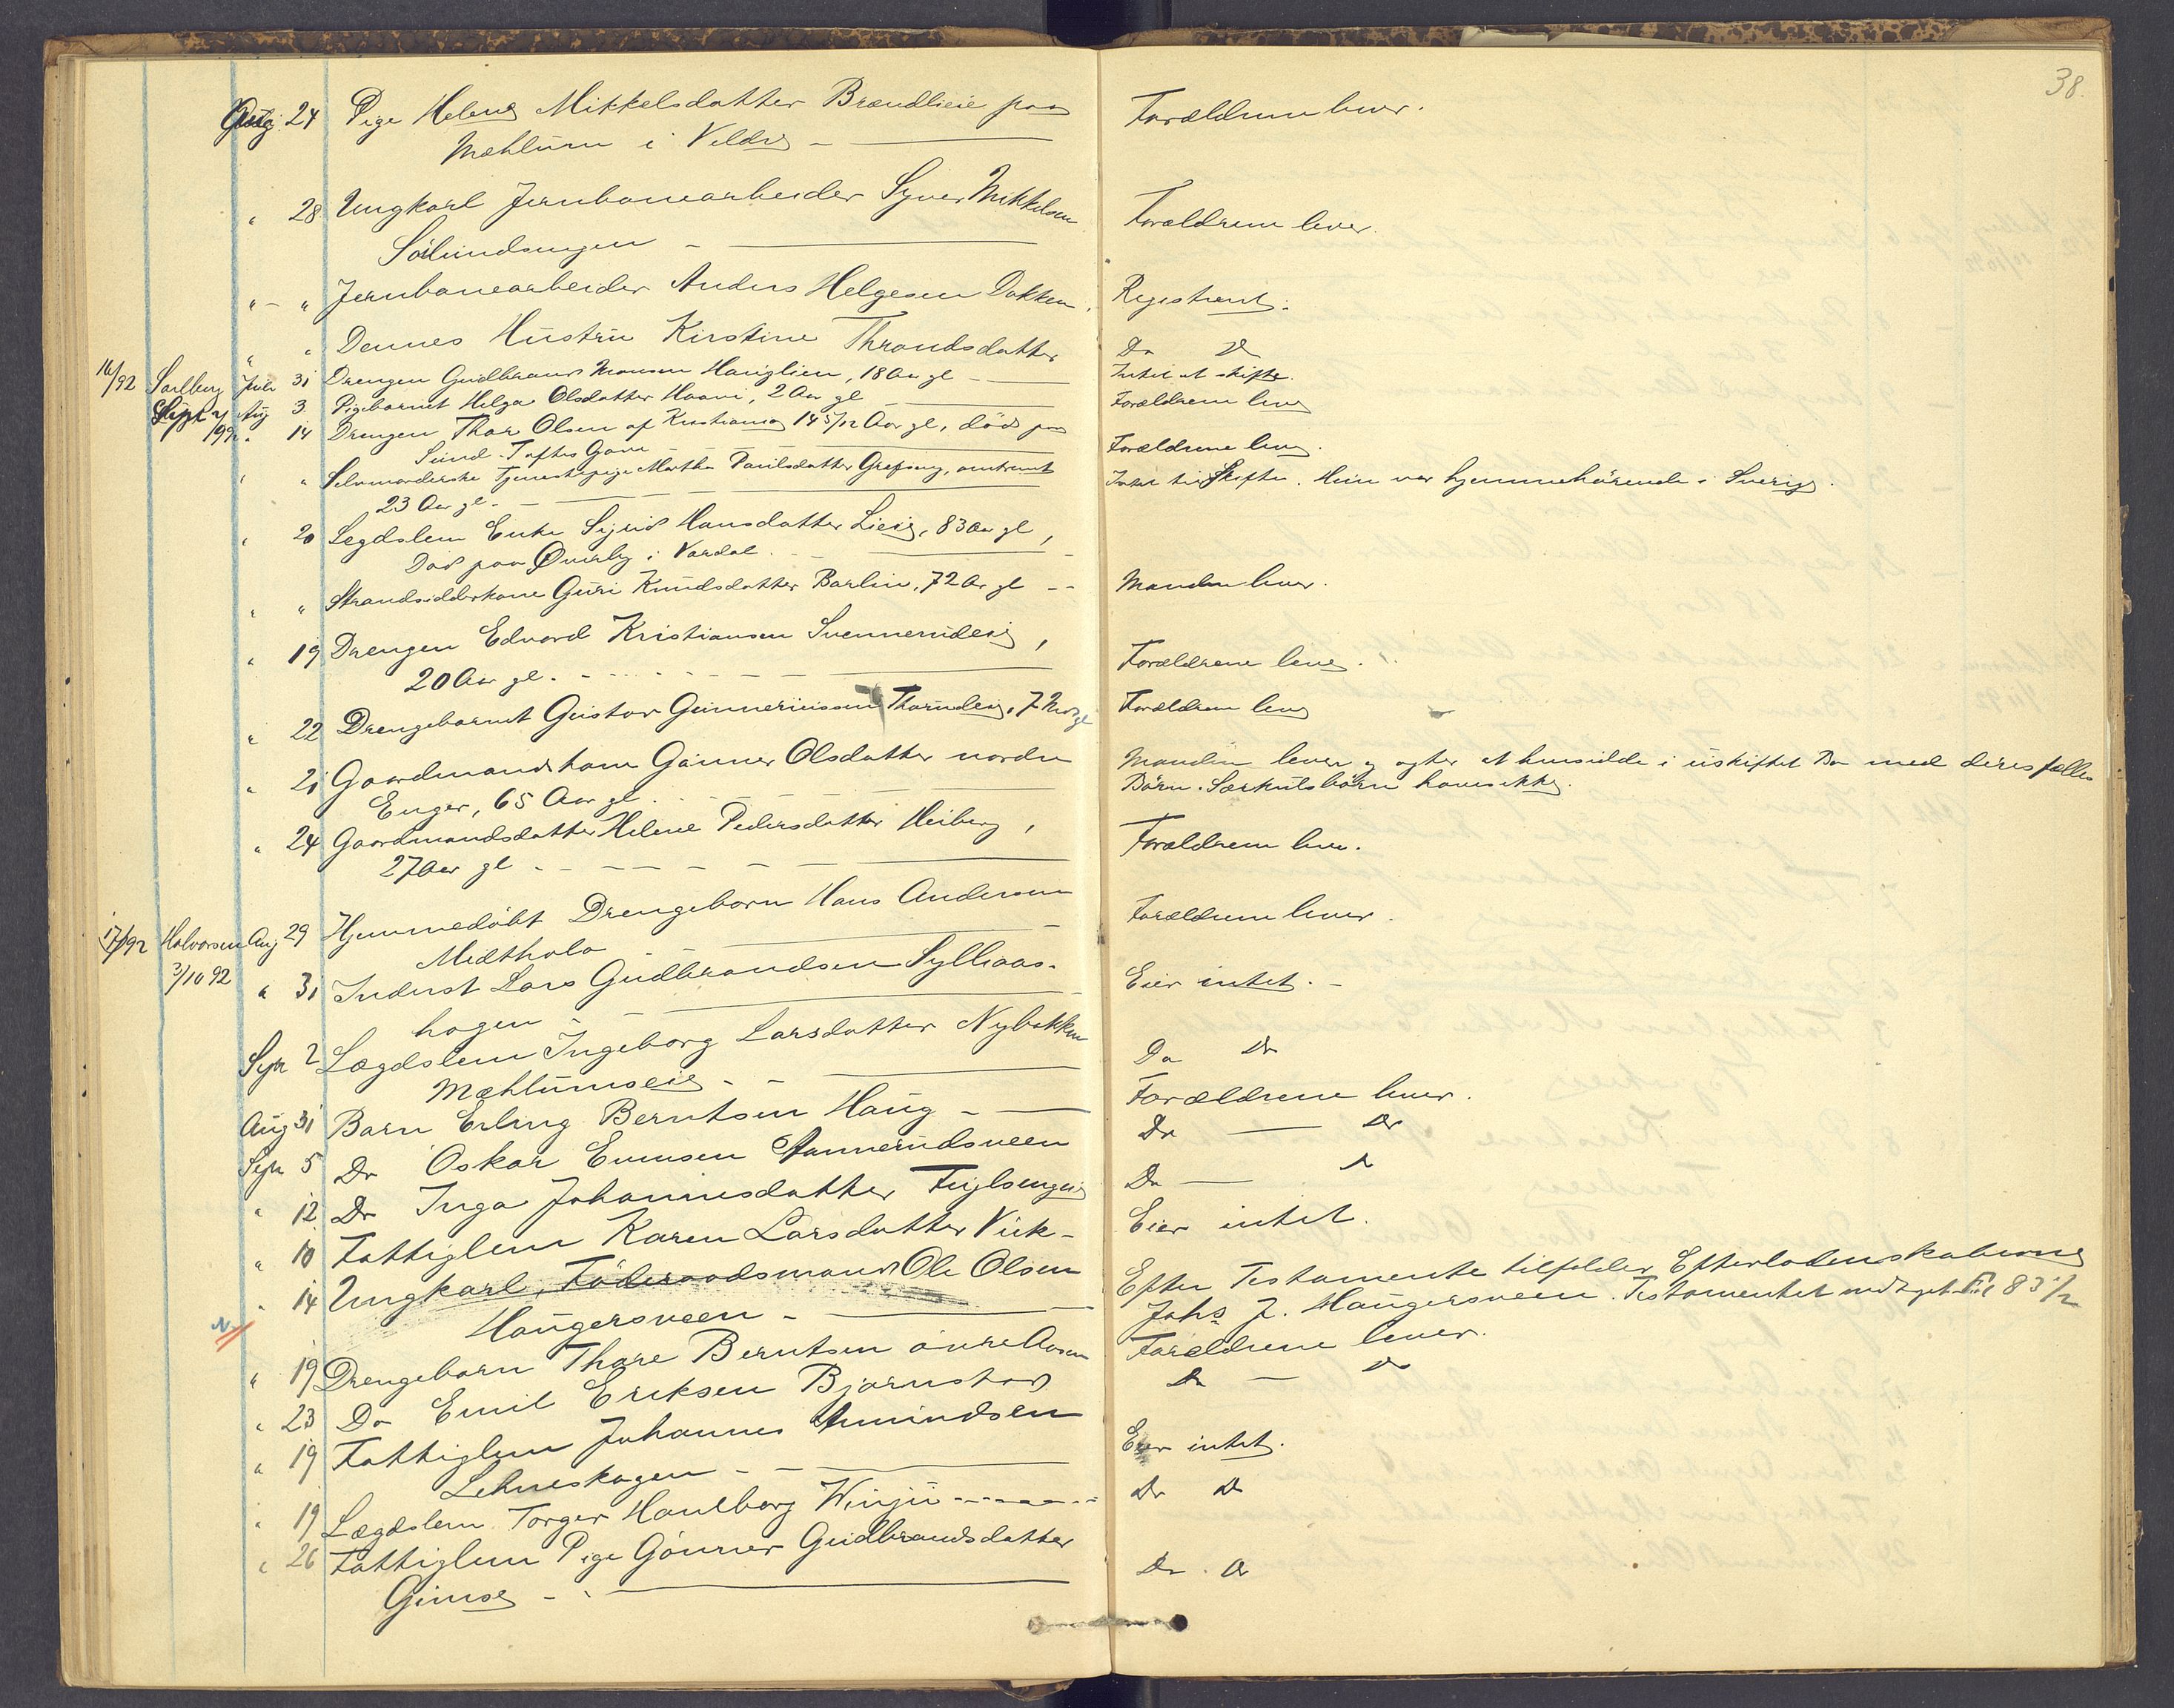 38.
Aug. 24 Pige Helene Mikkelsdatter Brændlieie paa Forældrene lever.
Mæhlum i Veldre
" 28 Ungkarl Jernbanearbeider Syver Mikkelsen Forældrene lever.
Sølundsengen
" - " Jernbanearbeider Anders Helgesen Dokken. Registreret.
" " Dennes Hustru Kirstine Throndsdatter Do Do
16/ 92 Juli 31 Drengen Gudbrand Monsen Hauglien, 18 Aar gl Intet at skifte.
Sept Aug 3 Pigebarnet Helga Olsdatter Haavi, 2 Aar gl Forældrene lever
" 14 Drengen Thor Olsen af Kristiania 14 5/12 Aar gl, död paa Forældrene lever.
Sund - Toftes Gave
" " Selvmorderske Tjenestepige Martha Paulsdatter Grefseng, omtrent Intet til Skifte. Hun var hjemmehörende i Sverige.
23 Aar gl.
" 20 Legdslem Enke Sigrid Hansdatter Lieie, 83 Aar gl,
Död paa Øverby i Vardal.
" " Strandsidderkone Guri Knudsdatter Barlin, 72 Aar gl Manden lever.
" 19 Drengen Edvard Kristiansen Svennerudeie, Forældrene lever.
20 Aar gl.
" 22 Drengebarnet Gustav Gunneriussen Thorudeie, 7 Mdr gl Forældrene lever
" 21 Gaardmandskone Gunner Olsdatter nordre Manden lever og agter at hensidde i uskiftet Bo med deres fælles
Enger, 65 Aar gl. Börn. Særkuldsbörn haves ikke.
" 24 Gaardmandsdatter Helene Pedersdatter Heiberg, Forældrene lever.
27 Aar gl
17/ 92 Halvorsen Aug 29 Hjemmedöbt Drengebarn Hans Andersen Forældrene lever.
3/10 92 Midthole
" 31 Inderst Lars Gudbrandsen Sylliaas- Eier intet.
hagen
Sept 2 Lægdslem Ingeborg Larsdatter Nybakken Do Do
Mæhlumseie
Aug 31 Barn Erling Berntsen Haug Forældrene lever.
Sept 5 Do Oskar Evensen Stannerudsveen Do Do
" 12 Do Inga Johannesdatter Fuglsengeie Do Do
" 10 Fattiglem Karen Larsdatter Viik Eier intet.
" 14 Ungkarl, Föderaadsmand Ole Olsen Efter Testamente tilfalder Efterladenskaberne
Haugersveen Johs J. Haugersveen. Testamentet
" 19 Drengebarn Thore Berntsen övre Aasen Forældrene lever.
" 23 Do Emil Eriksen Bjørnstad Do Do
" 19 Fattiglem Johannes Amundsen Eier intet.
Lehneskogen
" 19 Lægdslem Torger Haulborg Winju Do Do
" 26 Fattiglem Pige Gönner Gudbrandsdatter Do Do
Gimse